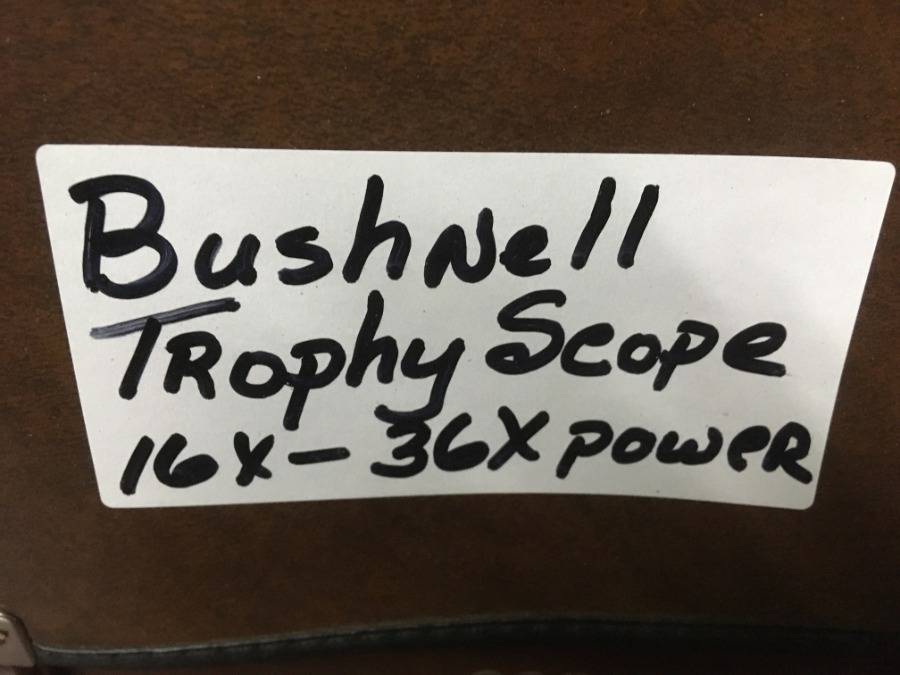 Bushnell
Trophy Scope
16X-36X power